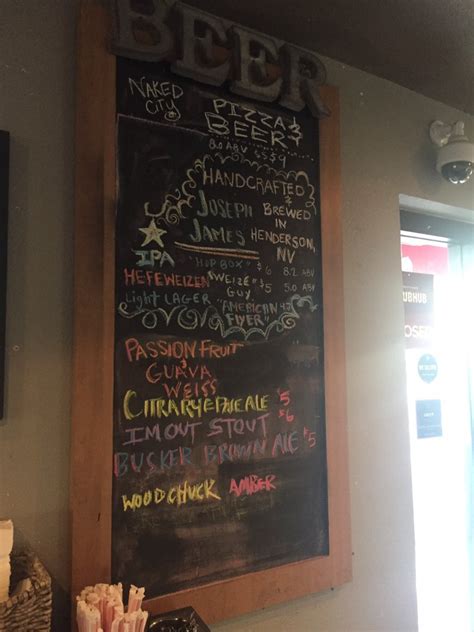 BEER
NAKED CITY
PIZZA &
BEER
8.0 ABV
HANDCRAFTED &
JOSEPH BREWED
JAMES IN
HENDERSON,
NV
IPA "HOP BOX" $6 8.2 ABV
HEFEWEIZEN "WEIZE GUY $5 5.0 ABV
Light LAGER "AMERICAN FLYER"
PASSION FRUIT
GUAVA
WEISS
CITRA RYE PALE ALE $5
IM OUT STOUT $6
BUSKER BROWN ALE $5
WOODCHUCK AMBER
UBHUB